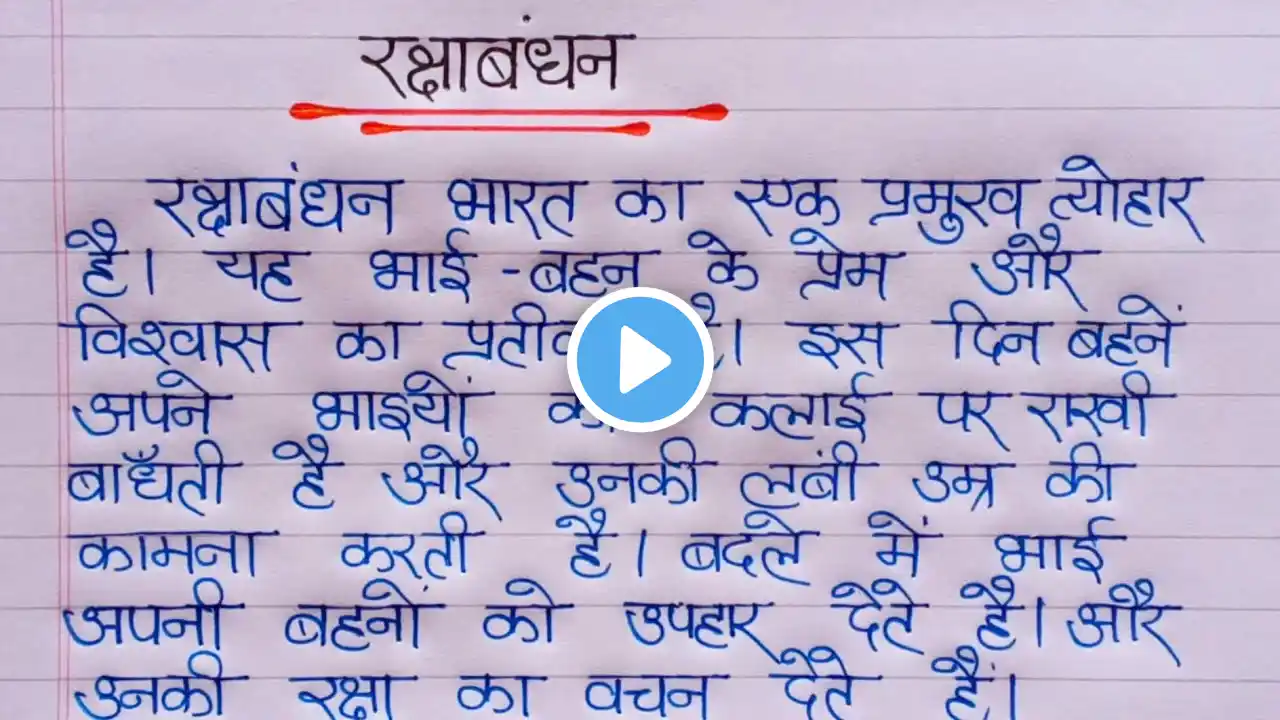 रक्षाबंधन
रक्षाबंधन भारत का एक प्रमुख त्योहार
है। यह भाई-बहन के प्रेम और
विश्वास का इस दिन बहनें
अपने भाइयों कलाई पर राखी
बाँधती है और उनकी लबंी उम्र की
कामना करती है। बदले में भाई
अपनी बहनों को उपहार देते है। और
उनकी रक्षा का वचन देते हैं।